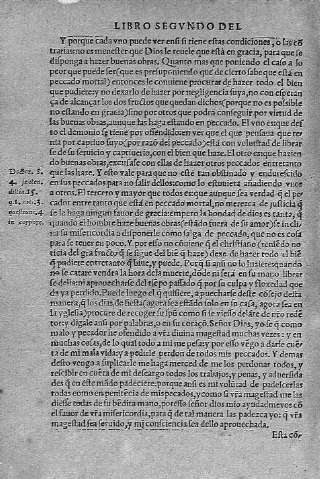 LIBRO SEGVNDO DEL
Y porque cada vno puede ver en si si tiene estas condiciones, o las cõ
trarias no es menester que Dios le reuele que está en gracia, para que se
disponga a hazer buenas obras. Quanto mas que poniendo el caso a lo
peor que puede ser (que es presuponiendo que de cierto sabe que está en
peccado mortal) entonces le conuiene procurar de hazer todo el bien
que pudiere: y no dexarlo de hazer por negligencia suya, no con esperan
ça de alcançar los dos fructos que quedan dichos (porque no es possible
no estando en gracia) sino por otros que podra conseguir por virtud de
las buenas obras, aunque las haga estando en peccado. El vno es que des
to el demonio se tiene por offendido en ver que el que pensaua que ter
nia por captiuo suyo (por razõ del peccado) está con voluntad de librar
se de su seruicio y captiuerio, con el bien que haze. El otro es que hazien
do buenas obras, escusase con ellas de hazer otros peccados entretanto
que las haze. Y esto vale para que no esté tan obstinado y endurescido
en sus peccados para no salir dellos como lo estuuiera añadiendo vnos
a otros. El tercero y mayor que todos es que aunque sea verdad q̃ el pe
cador entretanto que está en peccado mortal, no meresca de justicia q̃
se le haga ningun fauor de gracia: empero la bondad de dios es tanta, q̃
quando el hombre haze buenas obras (estãdo fuera de su amor) se incli
na su misericordia a disponerle como salga de peccado, que no es cosa
para se tener en poco. Y por esso no cõuiene q̃ el christiano (teniẽdo no
ticia del gra fructo, q̃ se sigue del biẽ q̃ haze) dexe de hazer todo el biẽ
q̃ pudiere entretanto q̃ biue, y puede,
no se catare vendra la hora de la muerte, dõde ni será en su mano librar
se della: ni aprouecharse del tiẽpo passado q̃ por su culpa y floxedad que
da ya perdido. Puede luego el q̃ quisiere, aprouecharse deste cõsejo desta
manera,
yglesia) procure de recoger su spũ como si se viesse delãte de nr̃o redẽ
tor: y digale assi por palabras, o en su coraçõ. Señor Dios, yo se q̃ como
malo y pecador he ofendido a vr̃a diuina magestad muchas vezes: y en
muchas cosas, de lo qual todo a mi me pesa: y por esso vẽgo a darle cuẽ
ta de mi mala vida: y a pedirle perdon de todos mis peccados. Y demas
desto vengo a suplicarle me haga merced de me los perdonar todos, y
rescibir en cuẽta de mi descargo todos los trabajos, y penas, y aduersida
des q̃ en este mũdo padeciere, porque ansi es mi volũtad de padescerlas
todas como en penitẽcia de mis pecados, y como si vr̃a magestad me las
diesse todas de su bẽdita mano, por esso señor dios mio ayudadme vos cõ
el fauor de vr̃a misericordia, para q̃ de tal manera las padezca yo: q̃ vr̃a
magestad sea seruido, y mi consciencia sea dello aprouechada.
Esta cõs